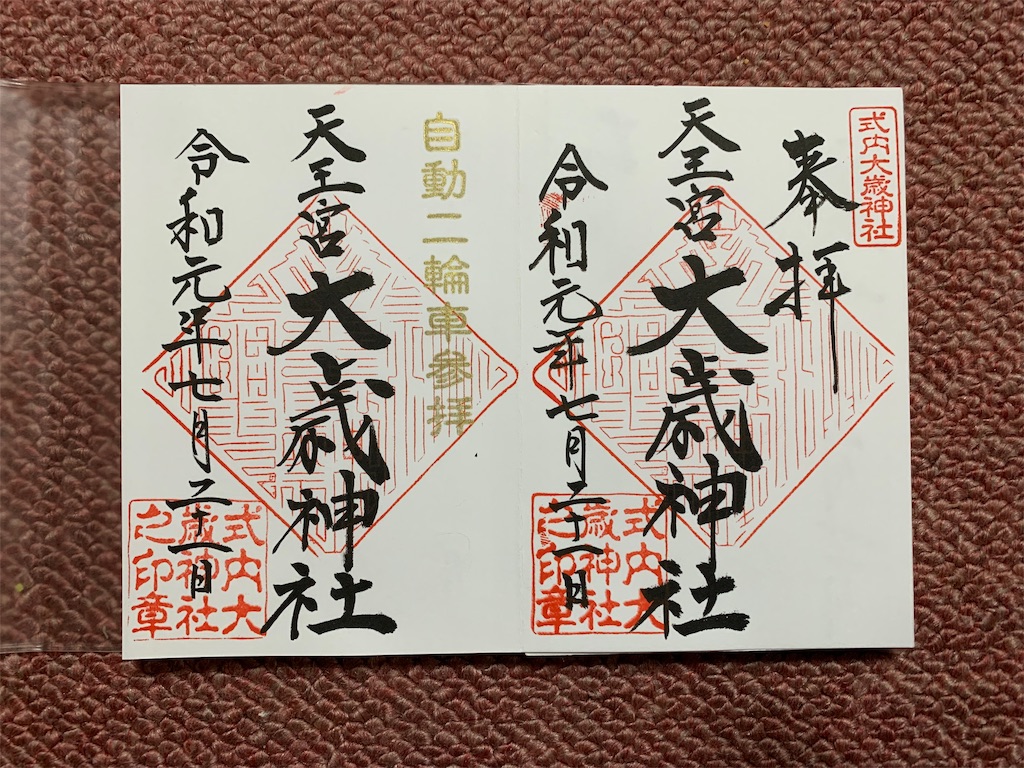 式内大歳神社
奉拝
天王宮 大歳神社
令和元年七月二十一日
式内大
歳神社
之印章
自動二輪車参拝
天王宮 大歳神社
令和元年七月二十一日
式内大
歳神社
之印章